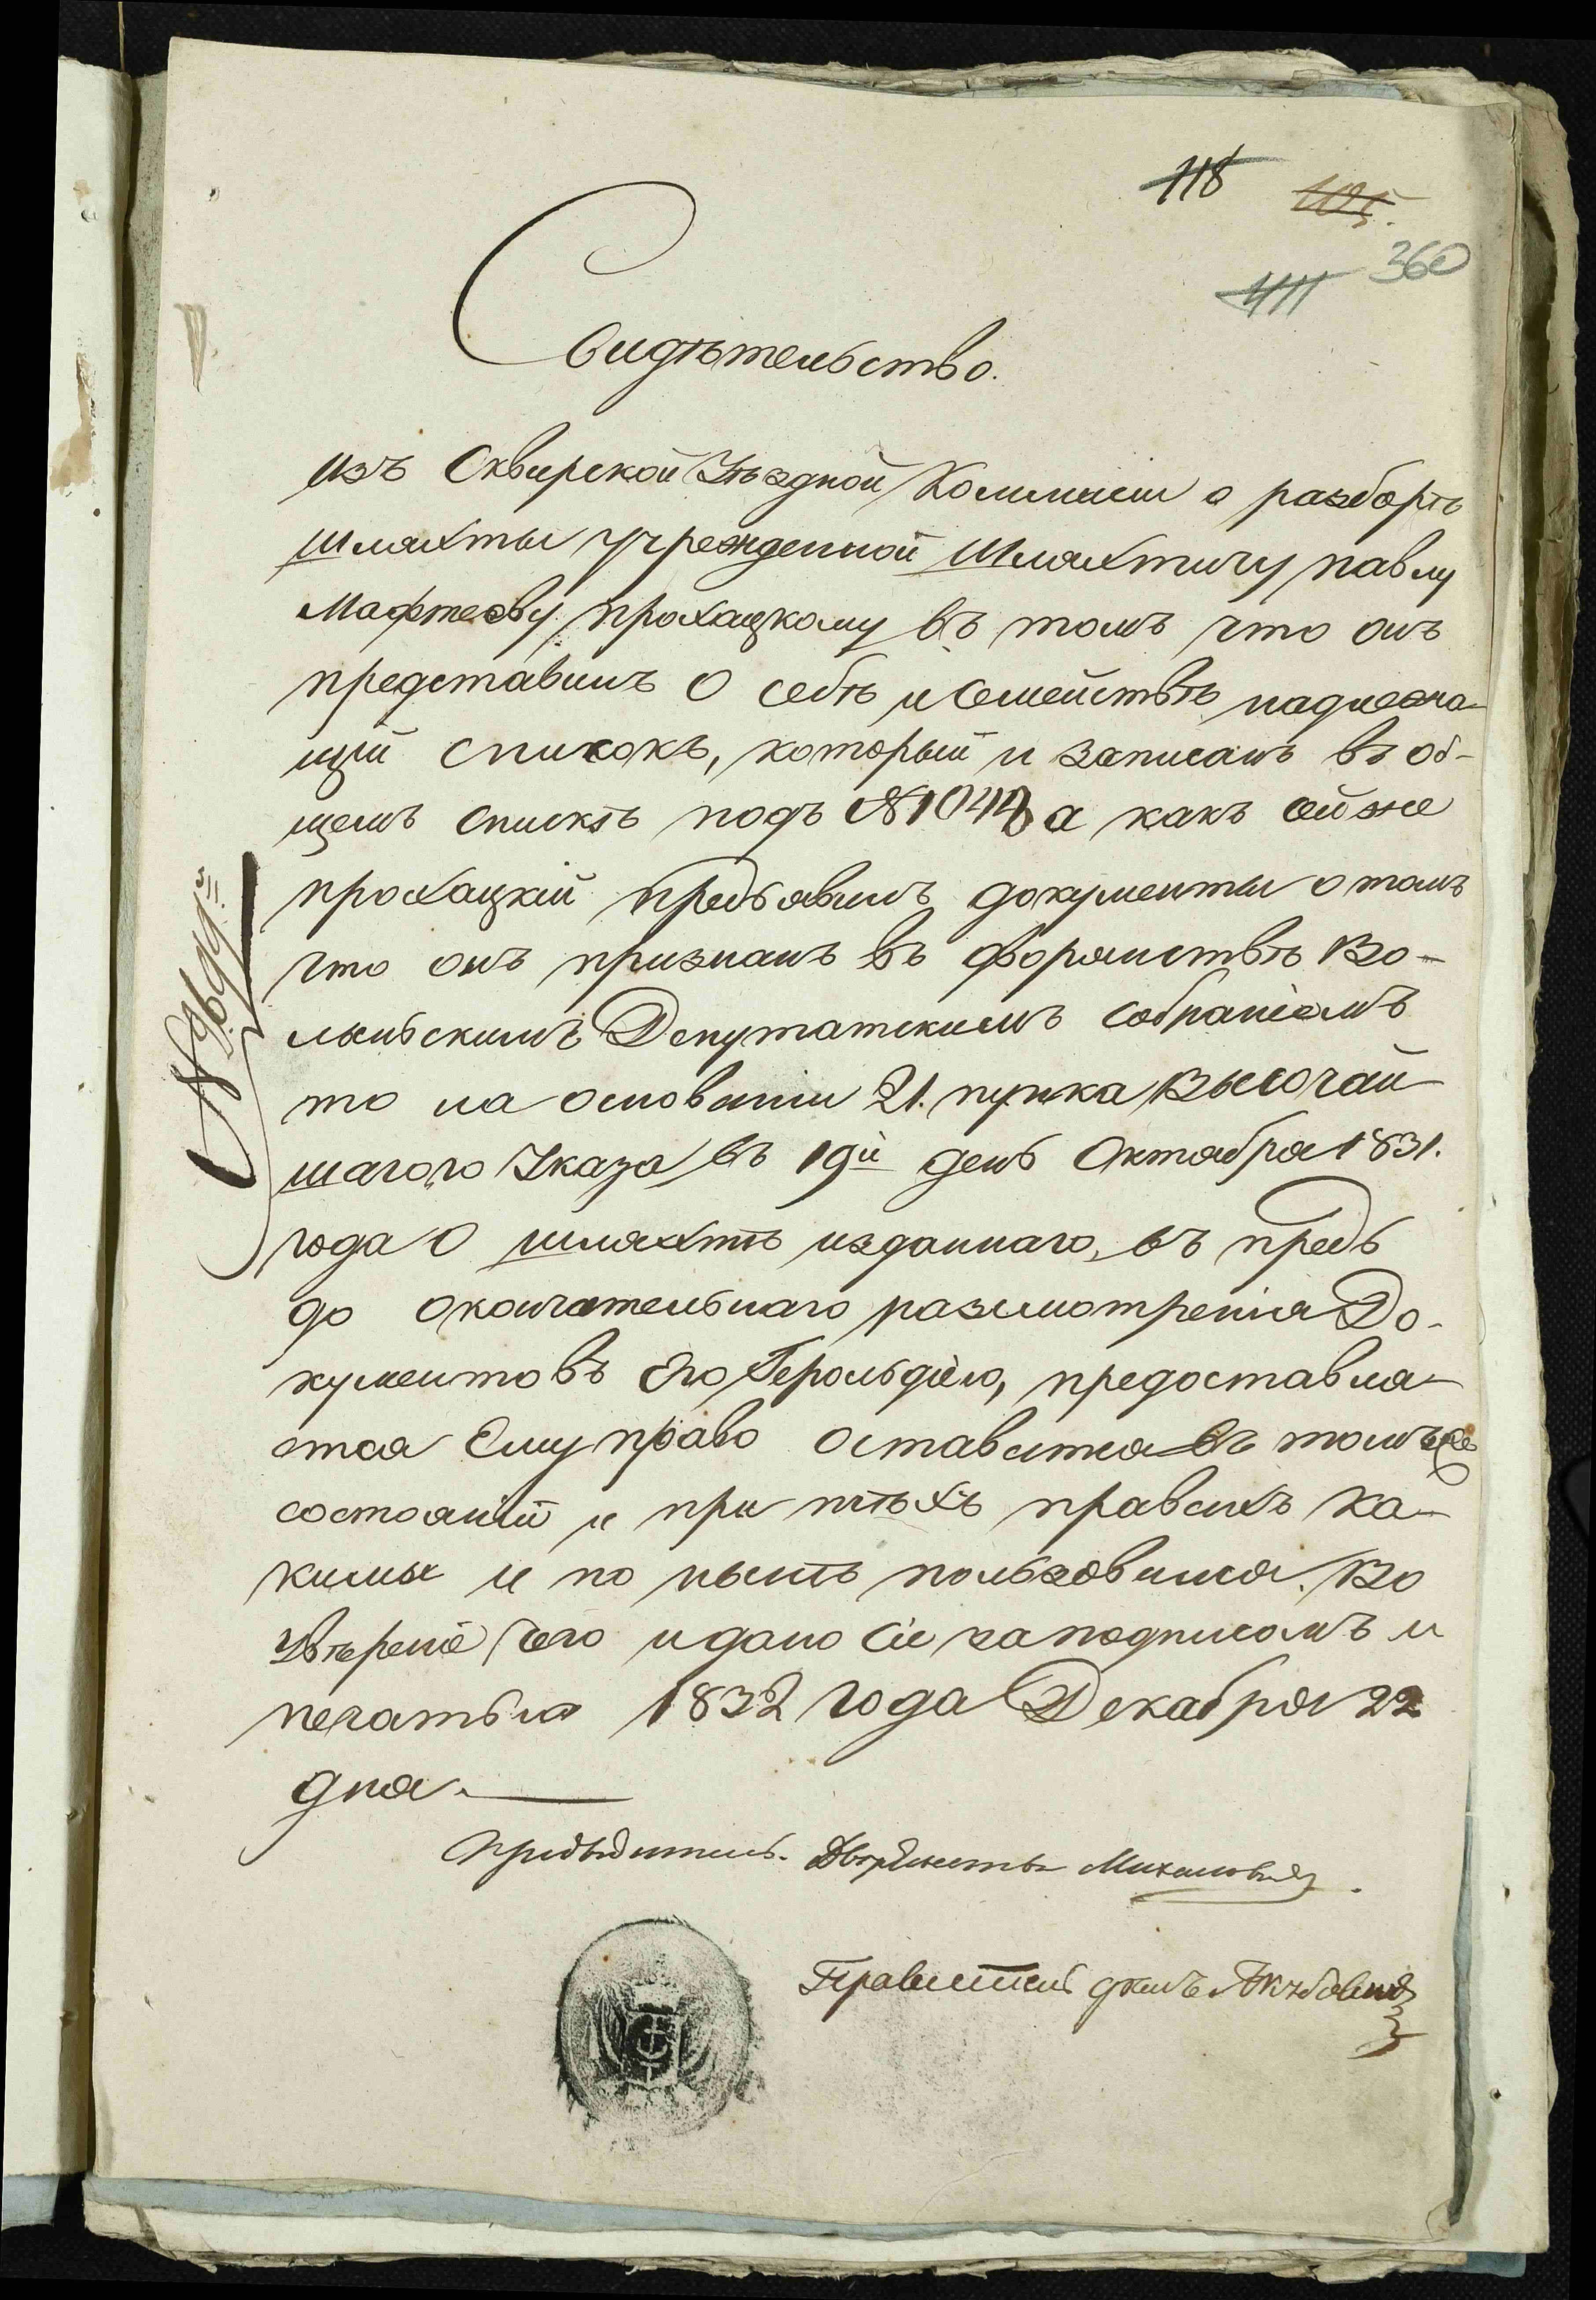 118
105.
360
411
Свидѣтельство.
изъ Сквирской Уѣздной Коммисіи о разборѣ
шляхты учрежденной Шляхтичу павлу
Мафтееву прохацкому въ томъ что онъ
представилъ о себѣ и Семействѣ надлежа-
щій списокъ, который и записанъ въ об-
щемъ спискѣ подъ №1048 а какъ сей же
прохацкій предъявилъ документы о томъ
что онъ признанъ въ дворянствѣ Во-
лынскимъ Депутатскимъ собраніемъ
то на основаніи 21. пунка Высочай
шагого Указа въ 19й день Октабря 1831.
года о шляхтѣ изданнаго, въ предь
до окончательнаго разсмотренія До-
кументовъ Его Герольдіею, предоставля-
этся Ему право оставатся въ томъ же
состояніи и при тѣхъ правахъ ка-
кими и по нынѣ пользовался. Во
увѣреніе чего и дано сіе за подписомъ и
печатью 1832 года Декабря 22
дня.
Предводитель Дворянства
Правитель дѣлъ